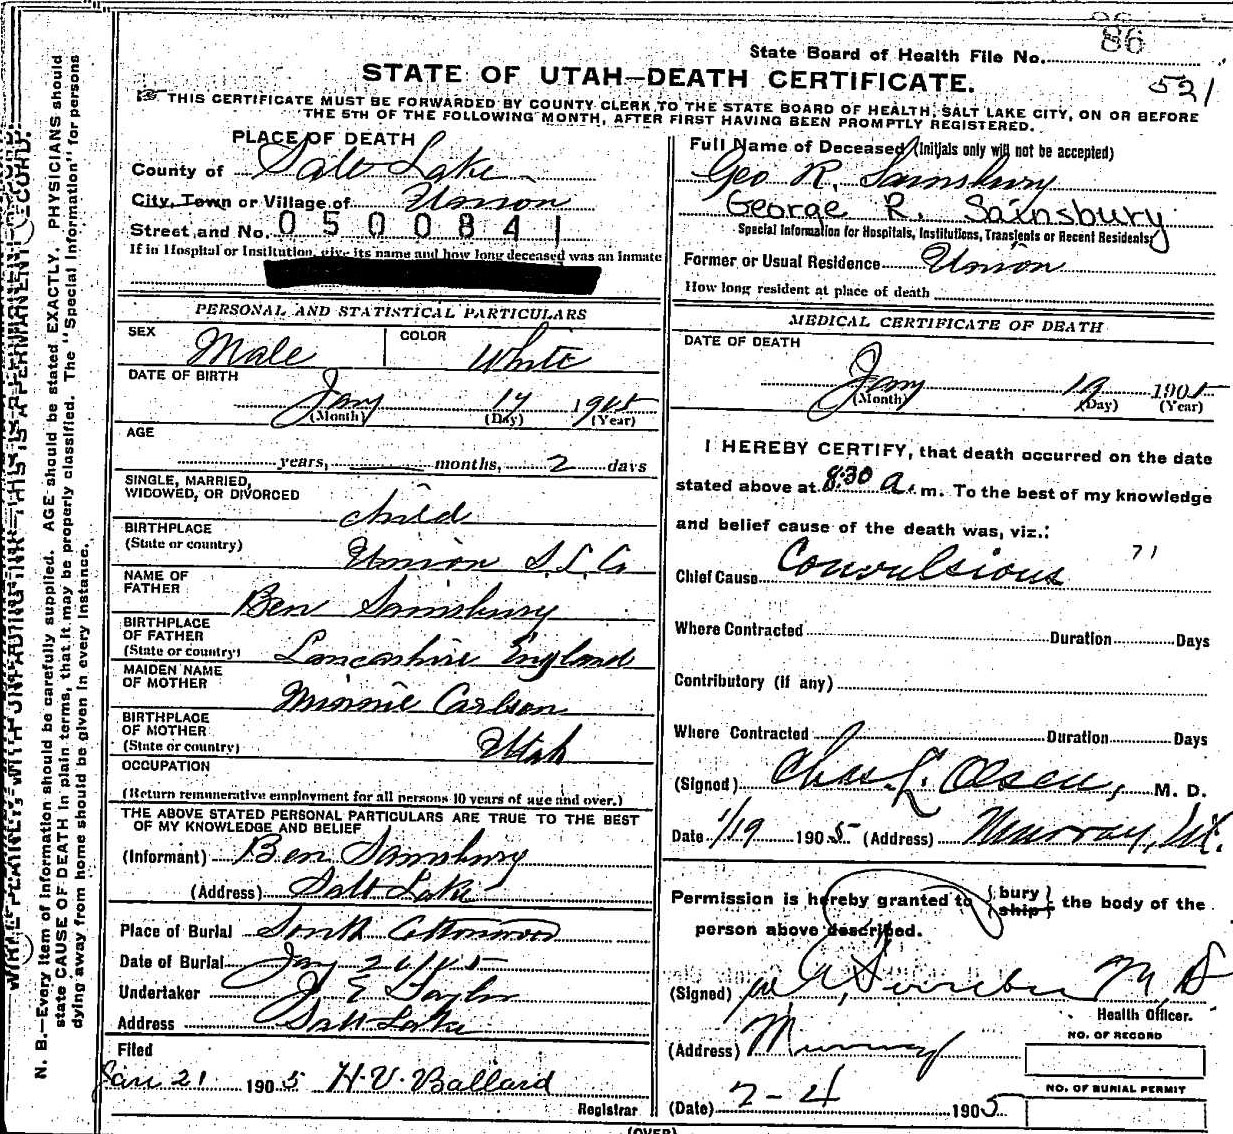 86
State Board of Health File No.
STATE OF UTAH—DEATH CERTIFICATE.
521
THIS CERTIFICATE MUST BE FORWARDED BY COUNTY CLERK TO THE STATE BOARD OF HEALTH, SALT LAKE CITY, ON OR BEFORE
THE 5TH OF THE FOLLOWING MONTH, AFTER FIRST HAVING BEEN PROMPTLY REGISTERED.
PLACE OF DEATH
County of Salt Lake
City, Town or Village of Union
Street and No. 0500841
If in Hospital or Institution, give its name and how long deceased was an inmate
Full Name of Deceased (Initials only will not be accepted)
Geo R. Sainsbury
George R. Sainsbury
Special Information for Hospitals, Institutions, Transients or Recent Residents
Former or Usual Residence Union
How long resident at place of death
PERSONAL AND STATISTICAL PARTICULARS
SEX Male COLOR White
DATE OF BIRTH
Jany 17 1905
(Month) (Day) (Year)
AGE
years, months, 2 days
SINGLE, MARRIED,
WIDOWED, OR DIVORCED
child
BIRTHPLACE
(State or country) Union S.L. Co
NAME OF
FATHER Ben Sainsbury
BIRTHPLACE
OF FATHER
(State or country) Lancashire England
MAIDEN NAME
OF MOTHER Minnie Carlson
BIRTHPLACE
OF MOTHER
(State or country) Utah
OCCUPATION
(Return remunerative employment for all persons 10 years of age and over.)
THE ABOVE STATED PERSONAL PARTICULARS ARE TRUE TO THE BEST
OF MY KNOWLEDGE AND BELIEF
(Informant) Ben Sainsbury
(Address) Salt Lake
Place of Burial South Cottonwood
Date of Burial Jany 20/05
Undertaker J E Taylor
Address Salt Lake
Filed
Jan 21 1905 H. V. Ballard
Registrar
MEDICAL CERTIFICATE OF DEATH
DATE OF DEATH
Jany 19 1905
(Month) (Day) (Year)
I HEREBY CERTIFY, that death occurred on the date
stated above at 8:30 a. m. To the best of my knowledge
and belief cause of the death was, viz.:
71
Chief Cause Convulsions
Where Contracted Duration Days
Contributory (if any)
Where Contracted Duration Days
(Signed) Chas. L. Olsen, M. D.
Date 1/19 1905 (Address) Murray, Ut.
Permission is hereby granted to {bury ship} the body of the
person above described.
(Signed) M. D.
Health Officer.
(Address) Murray
NO. OF RECORD
NO. OF BURIAL PERMIT
(Date) 2-4 1905
(OVER)
WRITE PLAINLY, WITH UNFADING INK—THIS IS A PERMANENT RECORD.
N. B.—Every item of information should be carefully supplied. AGE should be stated EXACTLY. PHYSICIANS should
state CAUSE OF DEATH in plain terms, that it may be properly classified. The "Special Information" for persons
dying away from home should be given in every instance.